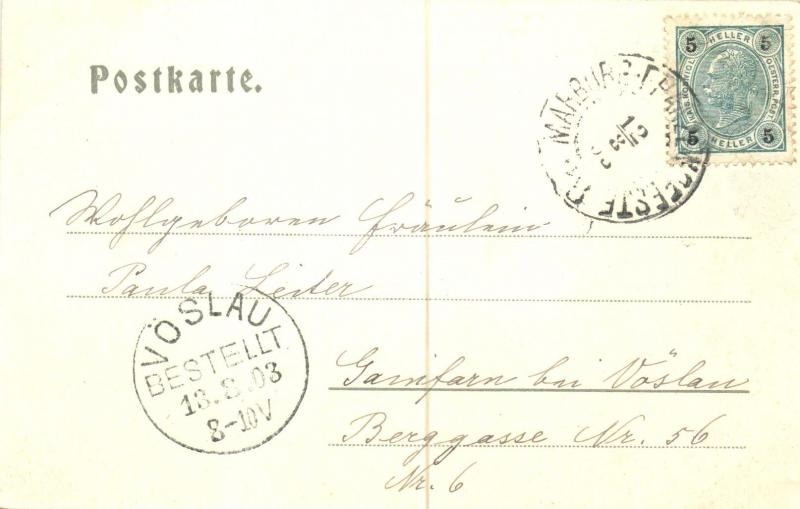 Postkarte.
5 HELLER 5
KAIS. KÖNIGL. OESTERR. POST.
5 HELLER 5
MARBURG
Wohlgeboren Fräulein
Paula Leiter
VÖSLAU
BESTELLT
13.8.03
8-10V
Gainfarn bei Vöslau
Berggasse Nr. 56
Nr. 6